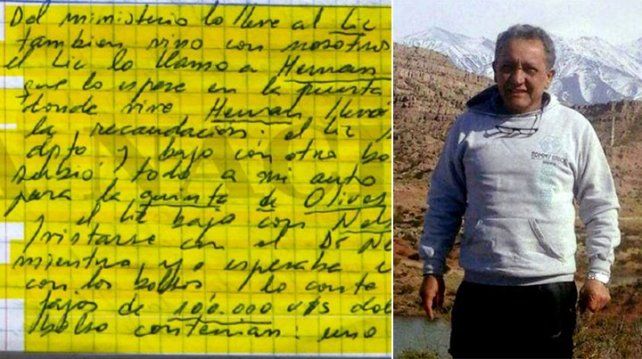 Del ministerio lo lleve al Lic
tambien vino con nosotros
el Lic lo llamo a Hernan
que lo espere en la puerta
donde vive Hernan llevó
la recaudación: el Lic
dpto y bajo con otro bo
subio todo a mi auto
para la quinta de Olivos
el Lic bajo con Nel
/ristarse con el Dr Ne
mientras yo esperaba
con los bolsos / lo conta
fajos de 100.000 U$S dol
/bolso contenian: uno